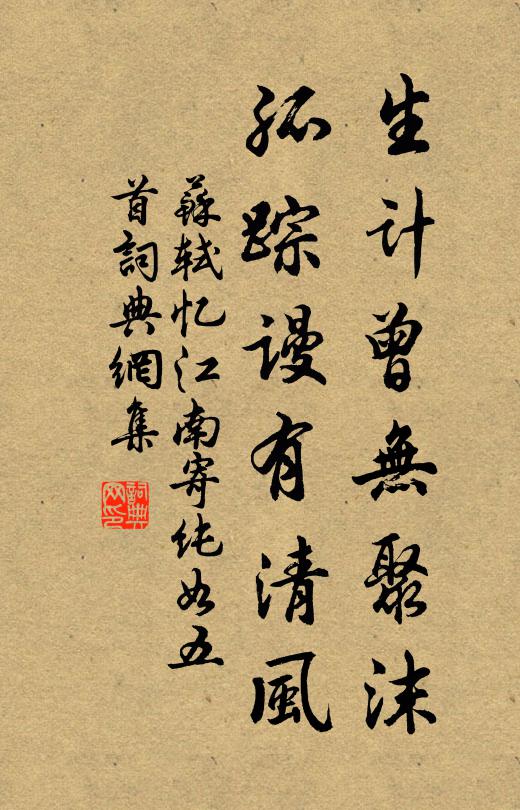 生计曾無聚沫
孤踪谩有清風
蘇軾忆江南寄纯如五
首詞典網集
詞典網印